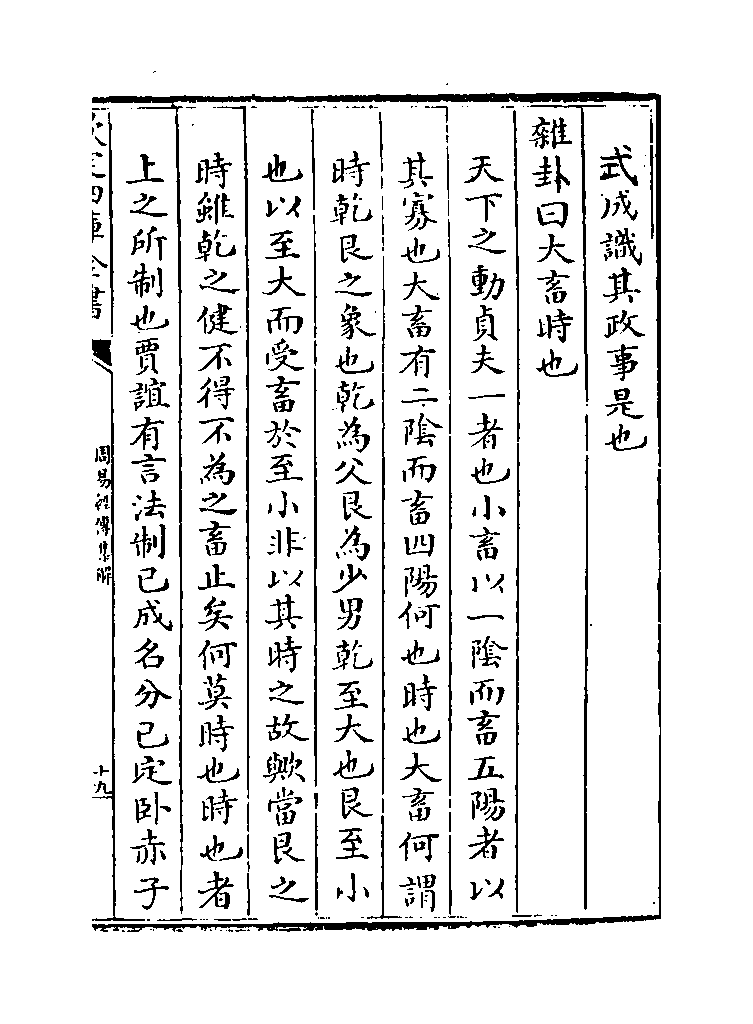 式成識其政事是也
雜卦曰大畜時也
天下之動貞夫一者也小畜以一陰而畜五陽者以
其寡也大畜有二陰而畜四陽何也時也大畜何謂
時乾艮之象也乾為父艮為少男乾至大也艮至小
也以至大而受畜於至小非以其時之故歟當艮之
時雖乾之健不得不為之畜止矣何莫時也時也者
上之所制也賈誼有言法制已成名分已定卧赤子
欽定四庫全書
周易經傳集解
十九